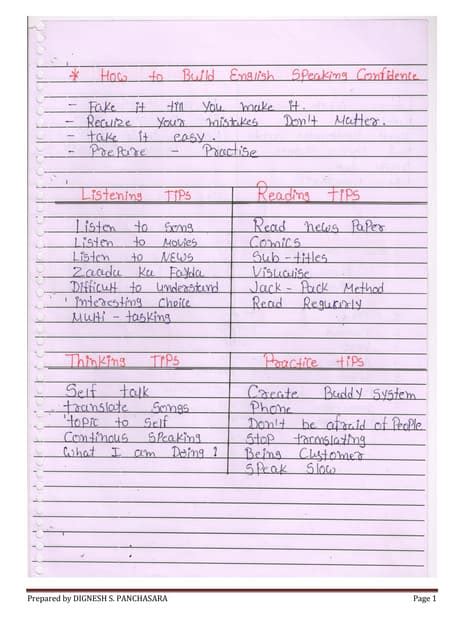 * How to Build English Speaking Confidence
- Fake it till you make it.
- Recurze your mistakes Don't Matter.
- take it easy.
- PrePare - Practise
Listening TIPS
Listen to Song
Listen to Movies
Listen to NEWS
Zaada Ka Fayda
Difficult to understand
Interesting Choice
Multi - tasking
Reading TIPS
Read news PaPer
Comics
Sub - titles
Visualise
Jack - Pack Method
Read Regularly
Thinking TIPS
Self talk
translate Songs
Topic to Self
Continous Speaking
What I am Doing ?
Practice tiPS
Create Buddy System
Phone
Don't be afraid of PeoPle
Stop translating
Being Customer
SPeak Slow
Prepared by DIGNESH S. PANCHASARA
Page 1